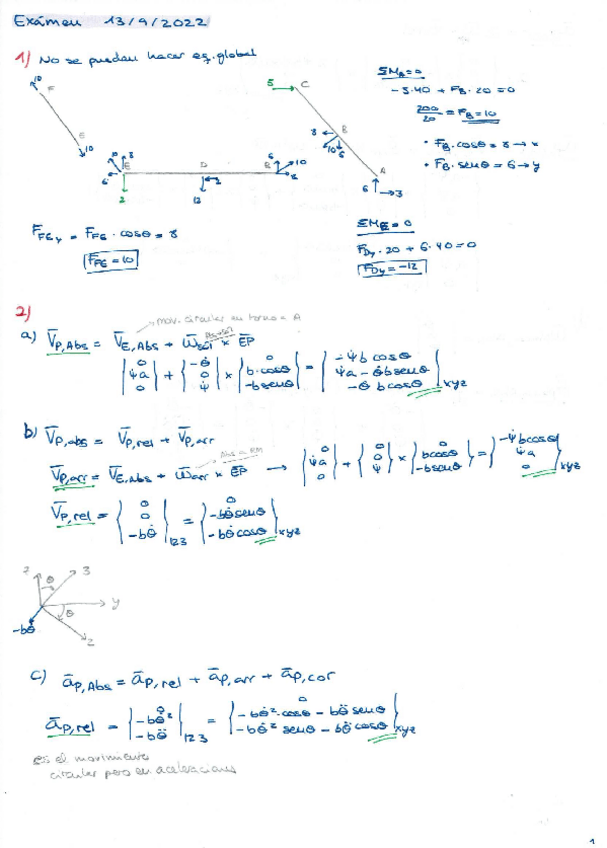 Exámen 13/9/2022
1) No se pueden hacer eq. global
ΣM_A=0
-5·40 + F_B·20=0
200/20 = F_B=10
· F_B·cosθ=8→x
· F_B·senθ=6→y
10 F E 10
10 8 E 6 2 D 2 12 B 6 10 8
5 C 8 B 10 6 A 6 3
F_FEy = F_FE·cosθ=8
F_FE=10
ΣM_E=0
F_Dy·20 + 6·40=0
F_Dy=-12
2)
mov. circular en torno a A
a) V̄_P,Abs = V̄_E,Abs + ω̄ × EP
{0, ψ̇a, 0} + {-θ̇, 0, ψ̇} × {0, b·cosθ, -bsenθ} = {-ψ̇b cosθ, ψ̇a - θ̇bsenθ, -θ̇ bcosθ}xyz
b) V̄_P,abs = V̄_P,rel + V̄_P,arr
V̄_P,arr = V̄_E,Abs + ω̄_arr × EP → {0, ψ̇a, 0} + {0, 0, ψ̇} × {0, bcosθ, -bsenθ} = {-ψ̇bcosθ, ψ̇a, 0}xyz
V̄_P,rel = {0, 0, -bθ̇}123 = {0, -bθ̇senθ, -bθ̇cosθ}xyz
z θ 3
y
θ
-bθ̇
2
c) ā_P,Abs = ā_P,rel + ā_P,arr + ā_P,cor
ā_P,rel = {0, -bθ̇², -bθ̈}123 = {0, -bθ̇²·cosθ - bθ̈senθ, -bθ̇² senθ - bθ̈cosθ}xyz
es el movimiento
circular pero en aceleraciones
1